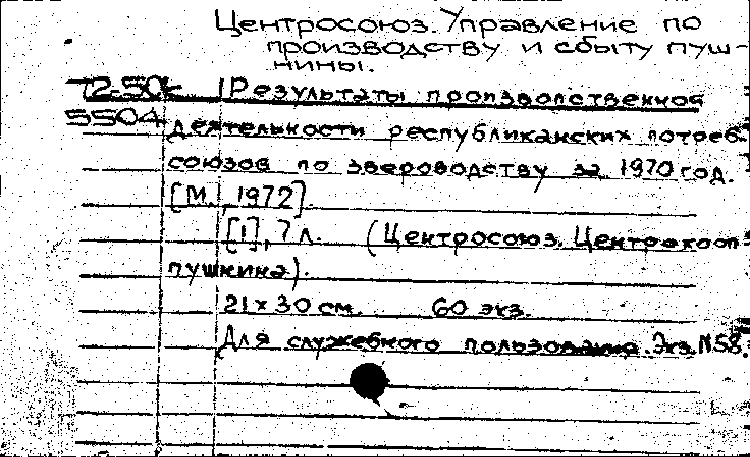 Центросоюз. Управление по
производству и сбыту пуш-
нины.
72-50к Результаты производственной
5504 деятельности республиканских потреб-
союзов по звероводству за 1970 год.
[М., 1972].
[1], 7 л. (Центросоюз. Центркооп-
пушнина).
21 × 30 см. 60 экз.
Для служебного пользования. Экз. №58.